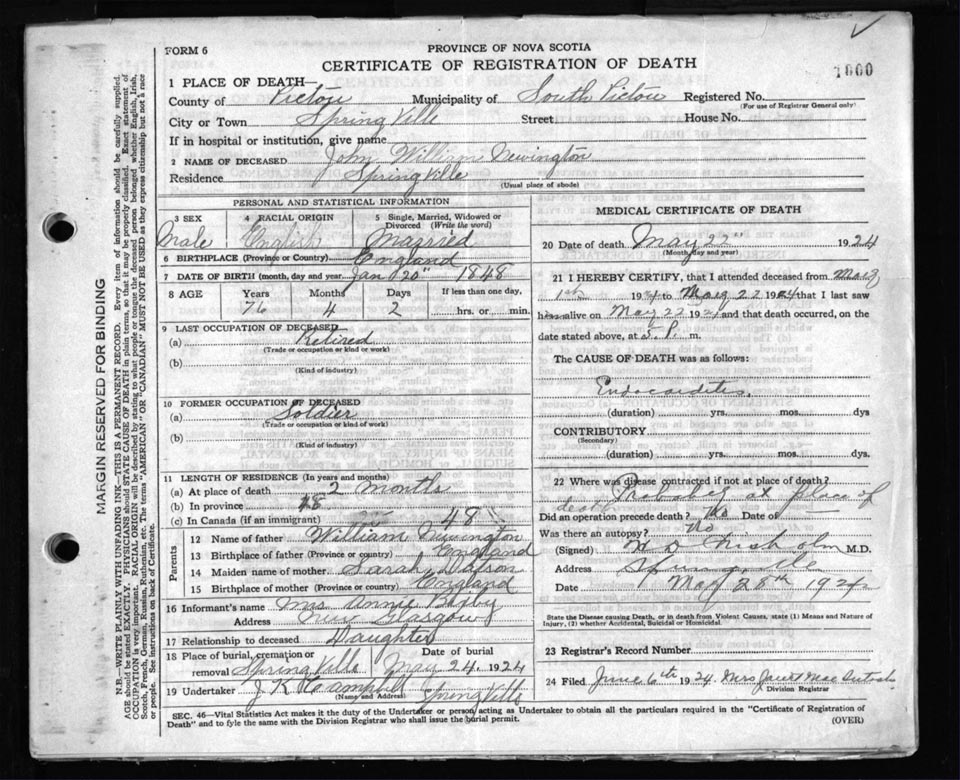 FORM 6
PROVINCE OF NOVA SCOTIA
CERTIFICATE OF REGISTRATION OF DEATH
1000
1 PLACE OF DEATH—
County of Pictou Municipality of South Pictou Registered No.
(For use of Registrar General only)
City or Town Spring Ville Street House No.
If in hospital or institution, give name
2 NAME OF DECEASED John William Newington
Residence Spring Ville
(Usual place of abode)
PERSONAL AND STATISTICAL INFORMATION
3 SEX Male
4 RACIAL ORIGIN English
5 Single, Married, Widowed or Divorced (Write the word) Married
6 BIRTHPLACE (Province or Country) England
7 DATE OF BIRTH (month, day and year) Jan 20" 1848
8 AGE Years 76 Months 4 Days 2 If less than one day, hrs. or min.
9 LAST OCCUPATION OF DECEASED
(a) Retired
(Trade or occupation or kind or work)
(b)
(Kind of industry)
10 FORMER OCCUPATION OF DECEASED
(a) Soldier
(Trade or occupation or kind of work)
(b)
(Kind of industry)
11 LENGTH OF RESIDENCE (In years and months)
(a) At place of death 2 months
(b) In province 48
(c) In Canada (if an immigrant) 48
Parents
12 Name of father William Newington
13 Birthplace of father (Province or country) England
14 Maiden name of mother Sarah
15 Birthplace of mother (Province or country) England
16 Informant's name Mrs Annie Bixby
Address New Glasgow
17 Relationship to deceased Daughter
18 Place of burial, cremation or removal Spring Ville Date of burial May 24, 1924
19 Undertaker J K Campbell Spring Ville
(Name and Address)
MEDICAL CERTIFICATE OF DEATH
20 Date of death May 22" 1924
(Month, day and year)
21 I HEREBY CERTIFY, that I attended deceased from May
1st 1924 to May 22 1924 that I last saw
him alive on May 22 1924 and that death occurred, on the
date stated above, at 5 P. m.
The CAUSE OF DEATH was as follows:
Endocarditis
(duration) yrs. mos. dys
CONTRIBUTORY
(Secondary)
(duration) yrs. mos. dys.
22 Where was disease contracted if not at place of death? Probably at place of
death
Did an operation precede death? No Date of —
Was there an autopsy? No
(Signed) M.D.
Address Springville
Date May 28th 1924
State the Disease causing Death, or in death from Violent Causes, state (1) Means and Nature of
Injury, (2) whether Accidental, Suicidal or Homicidal.
23 Registrar's Record Number
24 Filed June 6th 1924. Mrs Janet
Division Registrar
SEC. 46—Vital Statistics Act makes it the duty of the Undertaker or person acting as Undertaker to obtain all the particulars required in the "Certificate of Registration of
Death" and to fyle the same with the Division Registrar who shall issue the burial permit.
(OVER)
MARGIN RESERVED FOR BINDING
N.B.—WRITE PLAINLY WITH UNFADING INK—THIS IS A PERMANENT RECORD. Every item of information should be carefully supplied.
AGE should be stated EXACTLY. PHYSICIANS should STATE CAUSE OF DEATH in plain terms, so that it may be properly classified. Exact statement of
OCCUPATION is very important. RACIAL ORIGIN will be described by stating to what people or tongue the deceased person belonged, whether English, Irish,
Scotch, French, German, Russian, Ruthenian, etc. The terms "AMERICAN" OR "CANADIAN" MUST NOT BE USED as they express citizenship but not a race
or people. See instructions on back of Certificate.